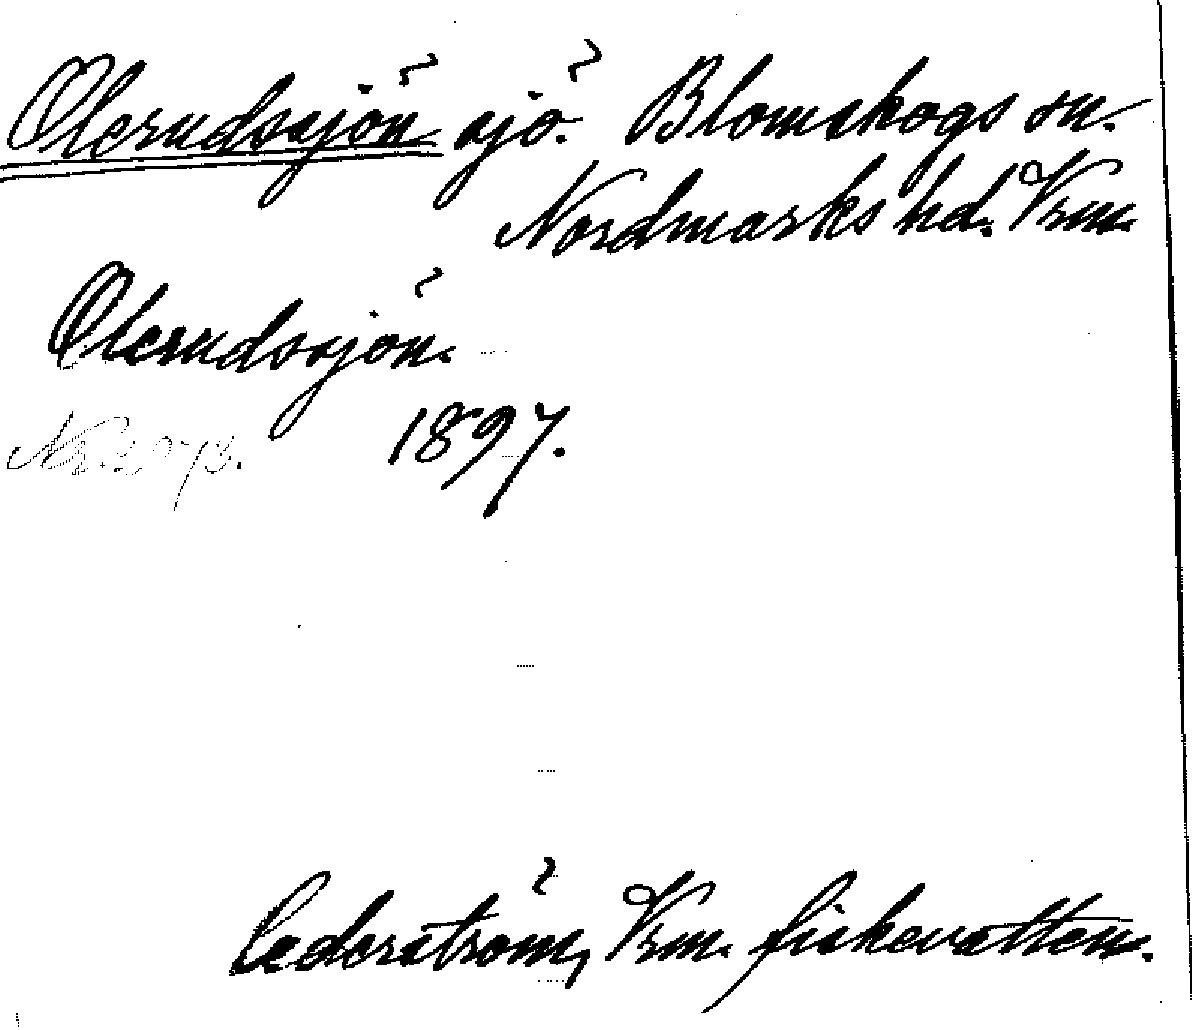 Olerudssjön sjö. Blomskogs sn.
Nordmarks hd. Vrm.
Olerudssjön.
1897.
Cederström, Vrm. fiskevatten.